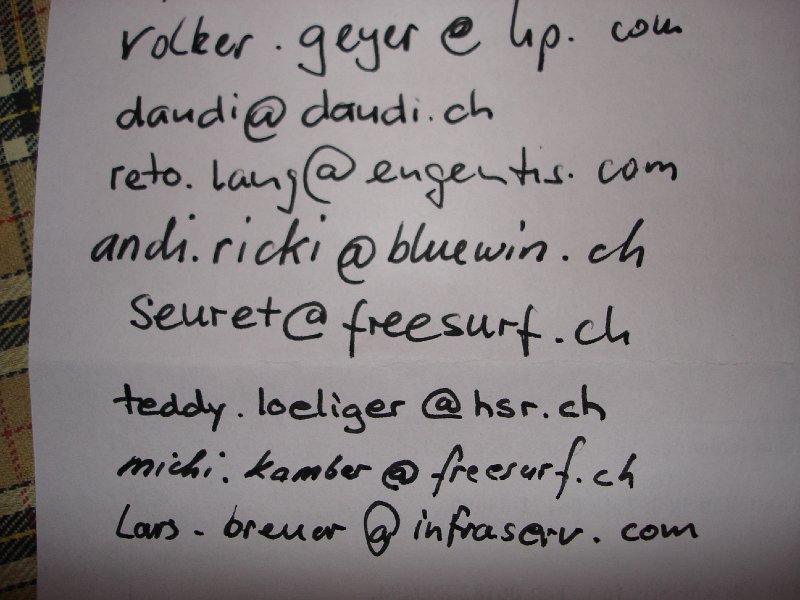 volker.geyer@hp.com
daudi@daudi.ch
reto.lang@engentis.com
andi.ricki@bluewin.ch
seuret@freesurf.ch
teddy.loeliger@hsr.ch
michi.kamber@freesurf.ch
Lars-breuer@infraserv.com